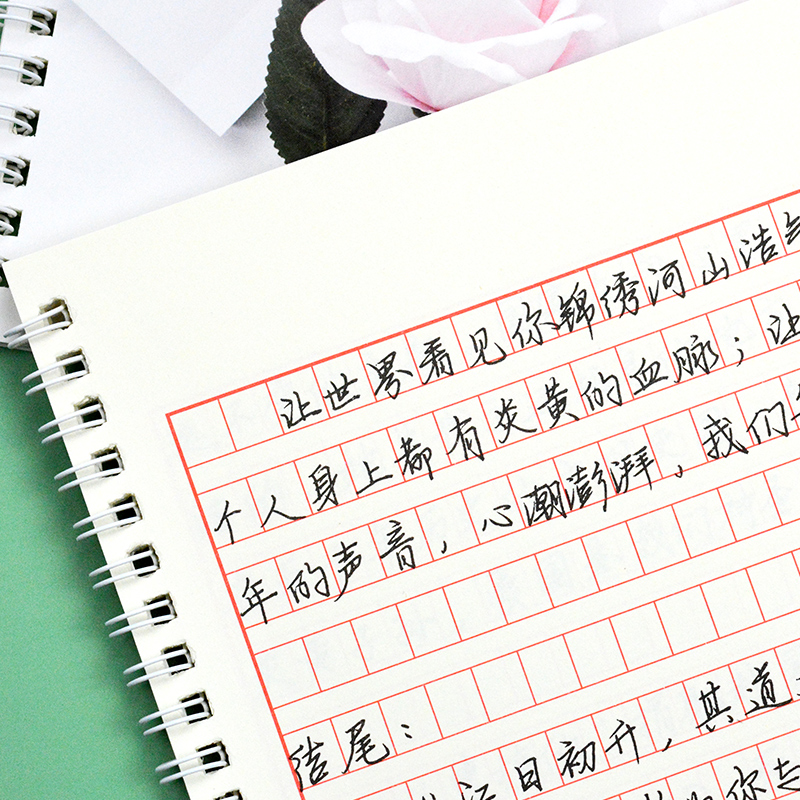 让世界看见你锦绣河山浩气
个人身上都有炎黄的血脉；让
年的声音，心潮澎湃，我们
结尾：
红日初升，其道
你走